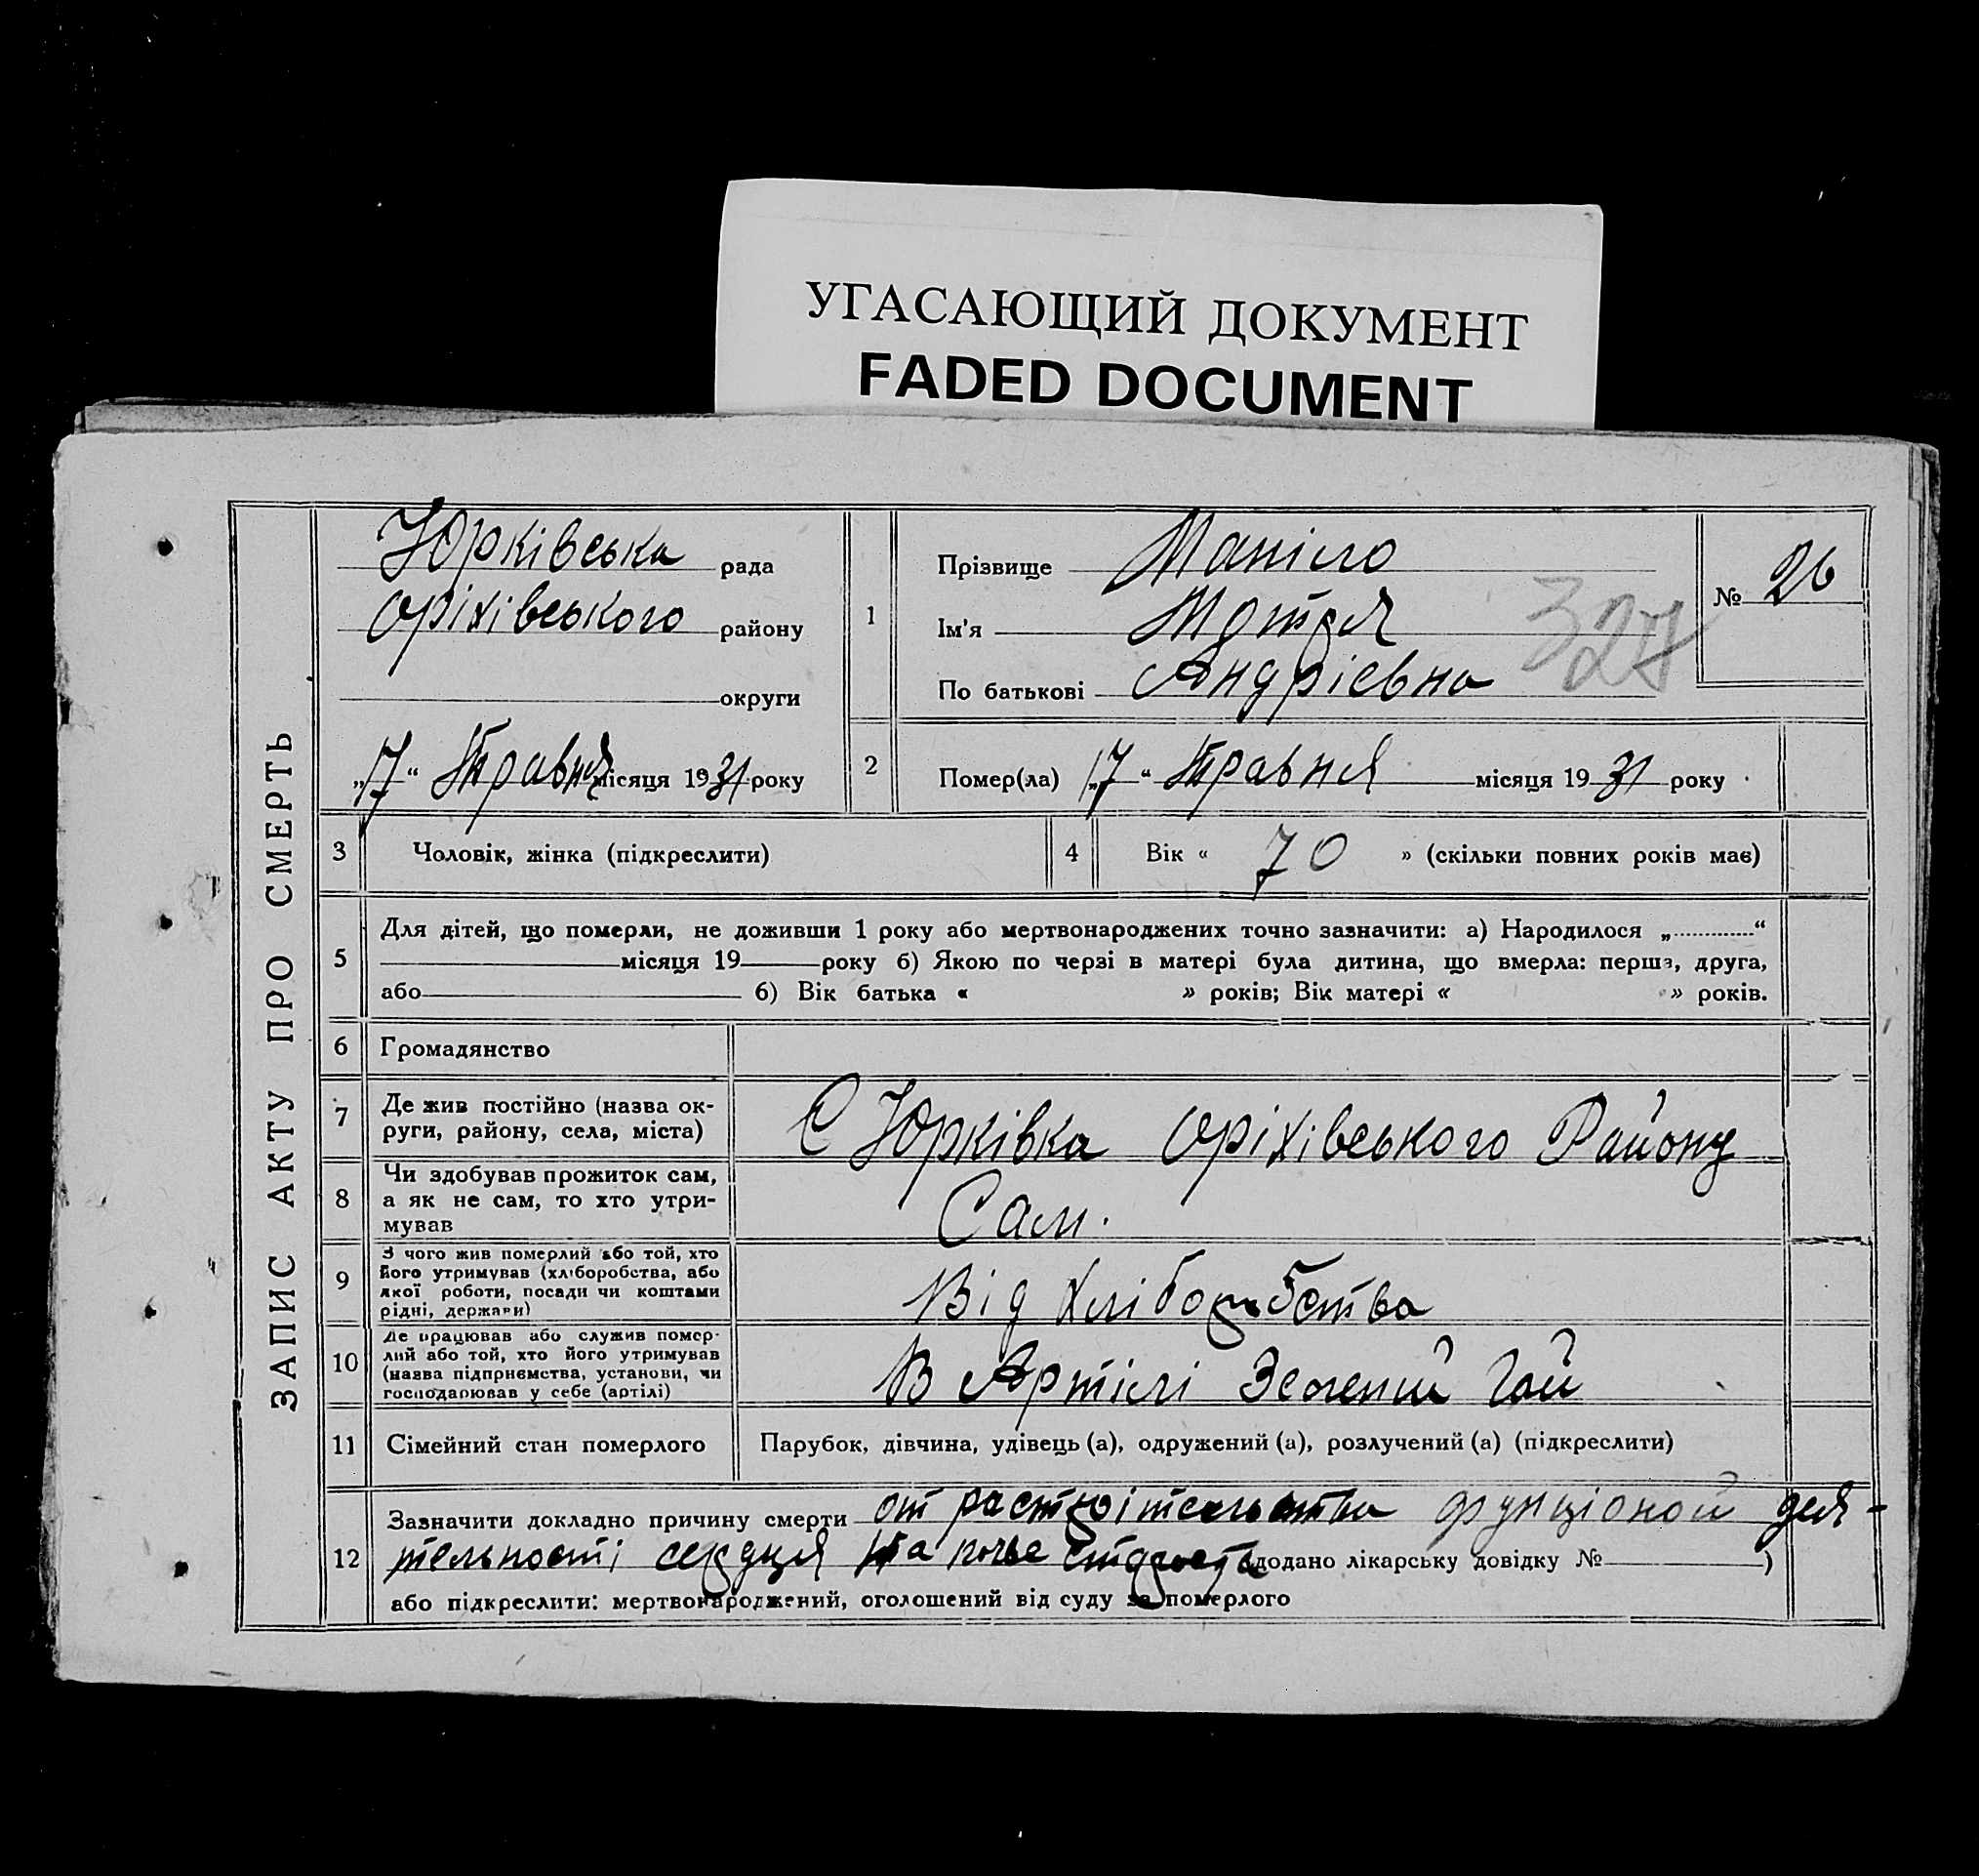 УГАСАЮЩИЙ ДОКУМЕНТ
FADED DOCUMENT
ЗАПИС АКТУ ПРО СМЕРТЬ
Юрківська рада
Оріхівського району
округи
„17“ Травня місяця 1931 року
1
Прізвище Маніло
Ім'я Мотря
По батькові Андрієвна
№ 26
327
2
Помер(ла) „17“ Травня місяця 1931 року
3 Чоловік, жінка (підкреслити)
4 Вік « 70 » (скільки повних років має)
5
Для дітей, що померли, не доживши 1 року або мертвонароджених точно зазначити: а) Народилося „ “
місяця 19 року б) Якою по черзі в матері була дитина, що вмерла: перша, друга,
або б) Вік батька « » років; Вік матері « » років.
6 Громадянство
7 Де жив постійно (назва ок-
руги, району, села, міста)
С Юрківка Оріхівського Району
8 Чи здобував прожиток сам,
а як не сам, то хто утри-
мував
Сам.
9 З чого жив померлий або той, хто
його утримував (хліборобства, або
якої роботи, посади чи коштами
рідні, держави)
Від хліборобства
10 Де працював або служив помер-
лий або той, хто його утримував
(назва підприємства, установи, чи
господарював у себе (артілі)
В Артілі Зелений Гай
11 Сімейний стан померлого
Парубок, дівчина, удівець (а), одружений (а), розлучений (а) (підкреслити)
12 Зазначити докладно причину смерти от функціоной дея-
тельності сердця На почве додано лікарську довідку № )
або підкреслити: мертвонароджений, оголошений від суду за померлого